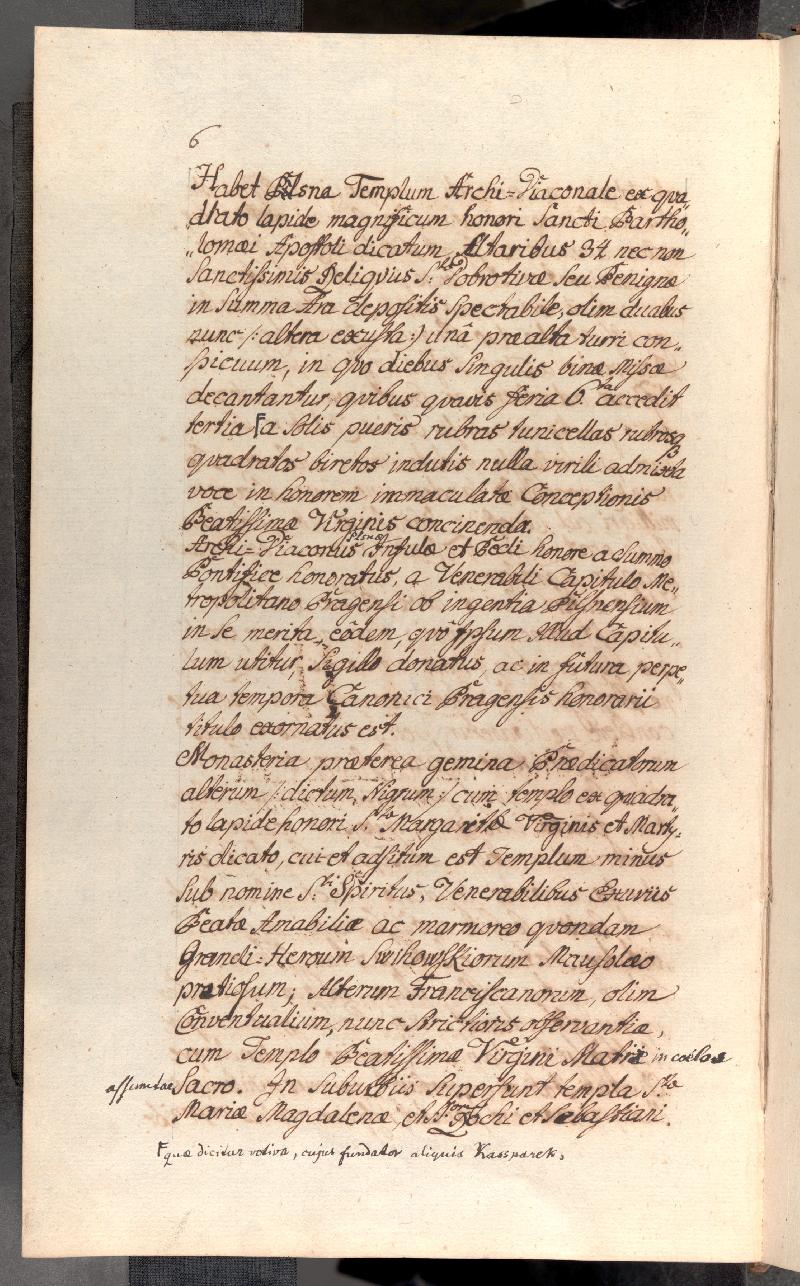 6
Habet Pilsna Templum Archi=Diaconale ex qva„
drato lapide magnificum honori Sancti Bartho„
„lomæi Apostoli dicatum, Altaribus 34 nec non
Sanctissimis Reliqviis S.tæ Dobrotivæ seu Benignæ
in summa Ara depositis spectabile, olim duabus
nunc /: altera exusta :/ unâ præalta turri con„
spicuum, in qvo diebus singulis binæ Missæ
decantantur, qvibus qvavis feria 6.ta accedit
tertia Γ a solis pueris rubras tunicellas rubrosq
quadratos biretos indutis nulla virili admixta
voce in honorem immaculatæ Conceptionis
Beatissimæ Virginis concinenda.
Archi=Diaconus Plsnen Infulæ et Pedi honore a Summo
Pontifice honoratus, a Venerabili Capitulo Me„
tropolitano Pragensi ob ingentia Pilsnensium
in se merita, eôdem, qvo ipsum illud Capitu„
lum utitur, Sigillo donatus, ac in futura perpe„
tua tempora Canonici Pragensis honorarii
titulo exornatus est.
Monasteria præterea gemina Prædicatorum
alterum /: dictum Nigrum :/ cum templo ex quadra„
to lapide honori S.tæ Margarithæ Virginis et Marty„
ris dicato, cui et adsitum est Templum minus
sub nomine S.ti Spiritus, Venerabilibus Exuviis
Beatæ Amabiliæ ac marmoreo qvondam
Grandi=Heroum Swihowskiorum Mausolæo
prætiosum; Alterum Franciscanorum, olim
Conventualium, nunc strictioris observantiæ,
cum Templo Beatissimæ Virgini Matri in coelos
assumtae Sacro. In Suburbiis supersunt templa S.tæ
Mariæ Magdalenæ, et S.torum Rochi et Sebastiani.
Γ quæ dicitur votiva, cujus fundator aliquis Kassparek.